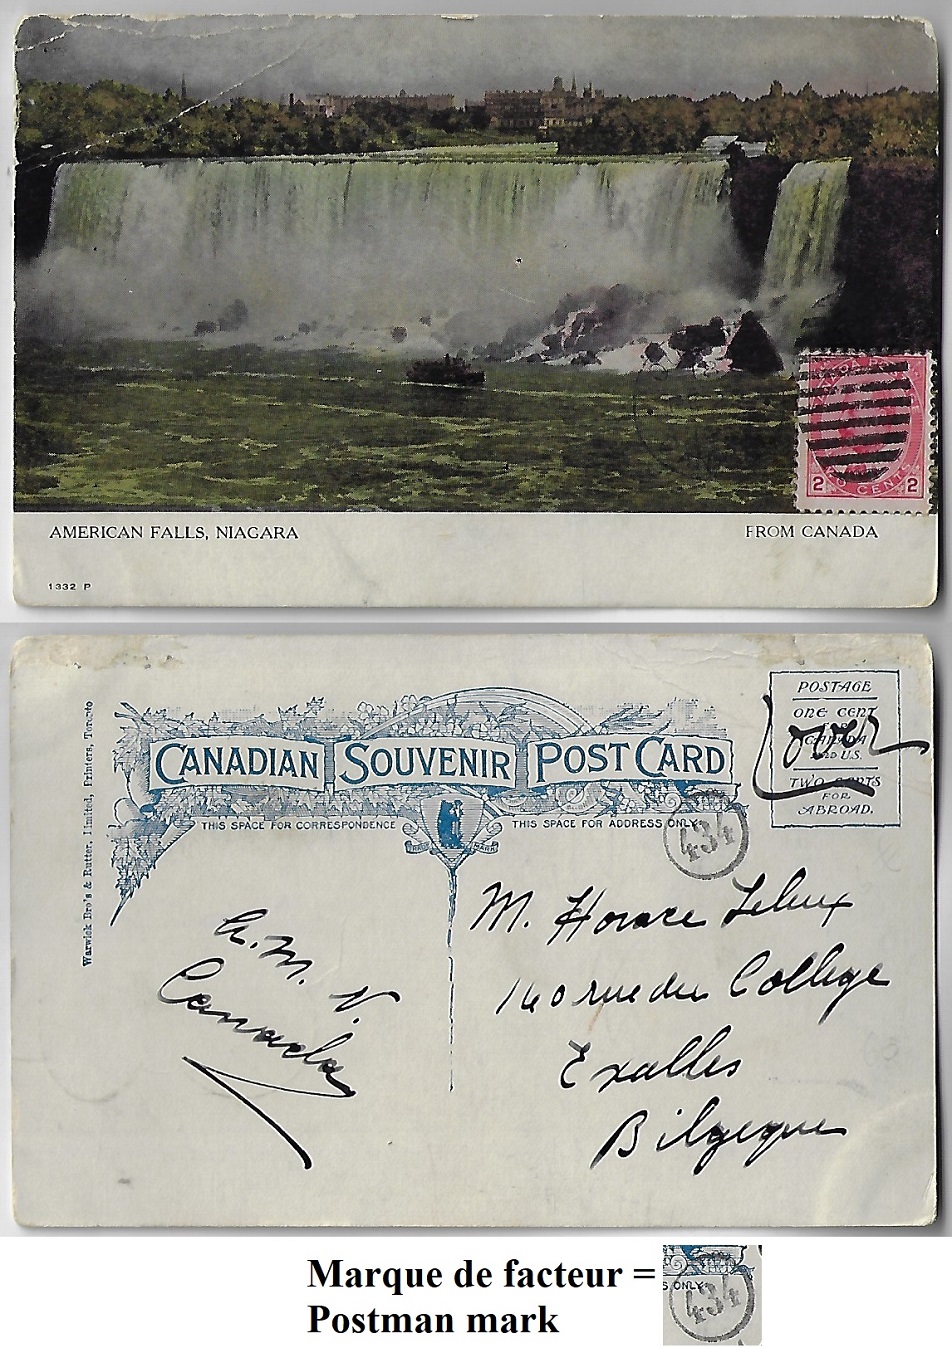 2 CENTS 2
AMERICAN FALLS, NIAGARA
FROM CANADA
1332 P
Warwick Bro's & Rutter, Limited, Printers, Toronto
CANADIAN SOUVENIR POST CARD
POSTAGE
ONE CENT
CANADA
AND U.S.
TWO CENTS
FOR
ABROAD.
over
THIS SPACE FOR CORRESPONDENCE
THIS SPACE FOR ADDRESS ONLY
TRADE MARK
434
M. Horace
140 rue du College
Exalles
Bilgeque
a. m. V.
Canada
Marque de facteur =
Postman mark
S ONLY
434